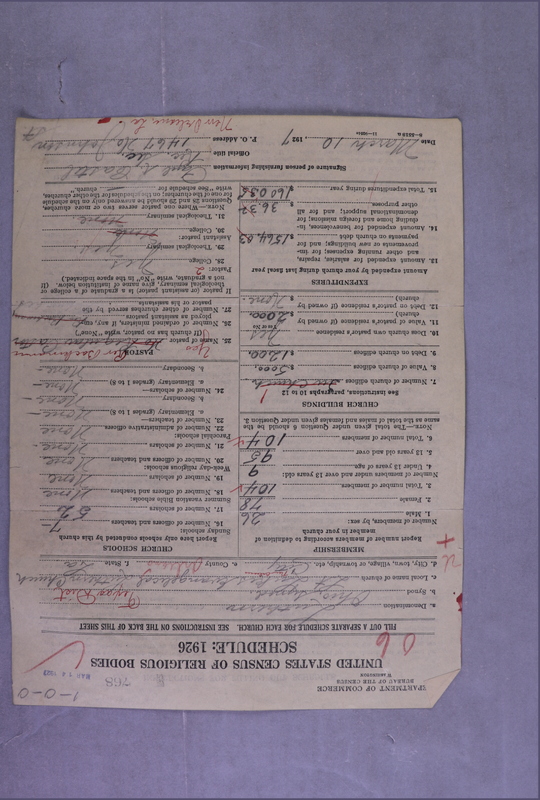 1-0-0
DEPARTMENT OF COMMERCE
BUREAU OF THE CENSUS
WASHINGTON
768
UNITED STATES CENSUS OF RELIGIOUS BODIES
SCHEDULE: 1926
06
FILL OUT A SEPARATE SCHEDULE FOR EACH CHURCH. SEE INSTRUCTIONS ON THE BACK OF THIS SHEET
a. Denomination Lutheran
b. Synod Ohio Synod Texas Dist
c. Local name of church Evangelical Lutheran Church
d. City, town, village, or township, etc. City
e. County Orleans
f. State La.
MEMBERSHIP
Report members according to definition of
member in your church
Number of members, by sex:
1. Male 26
2. Female 78
3. Total number of members 104
Number of members under and over 13 years old:
4. Under 13 years of age 9
5. 13 years old and over 95
6. Total number of members 104
NOTE.—This total given under Question 6 should be the
same as the total of males and females given under Question 3.
CHURCH BUILDINGS
See instructions, paragraphs 10 to 12
7. Number of church edifices 1
8. Value of church edifices $ 5000.
9. Debt on church edifices $ 1200.
10. Does church own pastor's residence Yes
11. Value of pastor's residence (if owned by
church) $ 2000.
12. Debt on pastor's residence (if owned by
church) $ None
EXPENDITURES
Amount expended by your church during last fiscal year
13. Amount expended for salaries, repairs,
and other running expenses; for im-
provements or new buildings; and for
payments on church debt $ 1564.83
14. Amount expended for benevolences, in-
cluding home and foreign missions; for
denominational support; and for all
other purposes $ 36.32
15. Total expenditures during year
CHURCH SCHOOLS
Report here only schools conducted by this church
Sunday schools:
16. Number of officers and teachers 7
17. Number of scholars 52
Summer vacation Bible schools:
18. Number of officers and teachers None
19. Number of scholars None
Week-day religious schools:
20. Number of officers and teachers None
21. Number of scholars None
Parochial schools:
22. Number of administrative officers None
23. Number of teachers—
a. Elementary (grades 1 to 8) None
b. Secondary None
24. Number of scholars—
a. Elementary (grades 1 to 8) None
b. Secondary None
PASTOR
25. Name of pastor No Regular Pastor
(If church has no pastor, write "None")
26. No. of ordained ministers, if any, em-
ployed as assistant pastors
27. Number of other churches served by
pastor or his assistants
If pastor (or assistant pastor) is a graduate of a college or
theological seminary, give name of institution below. (If
not a graduate, write "No" in the space indicated.)
Pastor:
28. College Yes
29. Theological seminary Yes
Assistant pastor:
30. College
31. Theological seminary None
NOTE.—Where one pastor serves two or more churches,
Questions 28 and 29 should be answered only on the schedule
for one of the churches; on the schedules for the other churches,
write "See schedule for church."
Signature of person furnishing information
Official title
P. O. Address 1467 No Johnson St
New Orleans La.
Date March 10, 1927